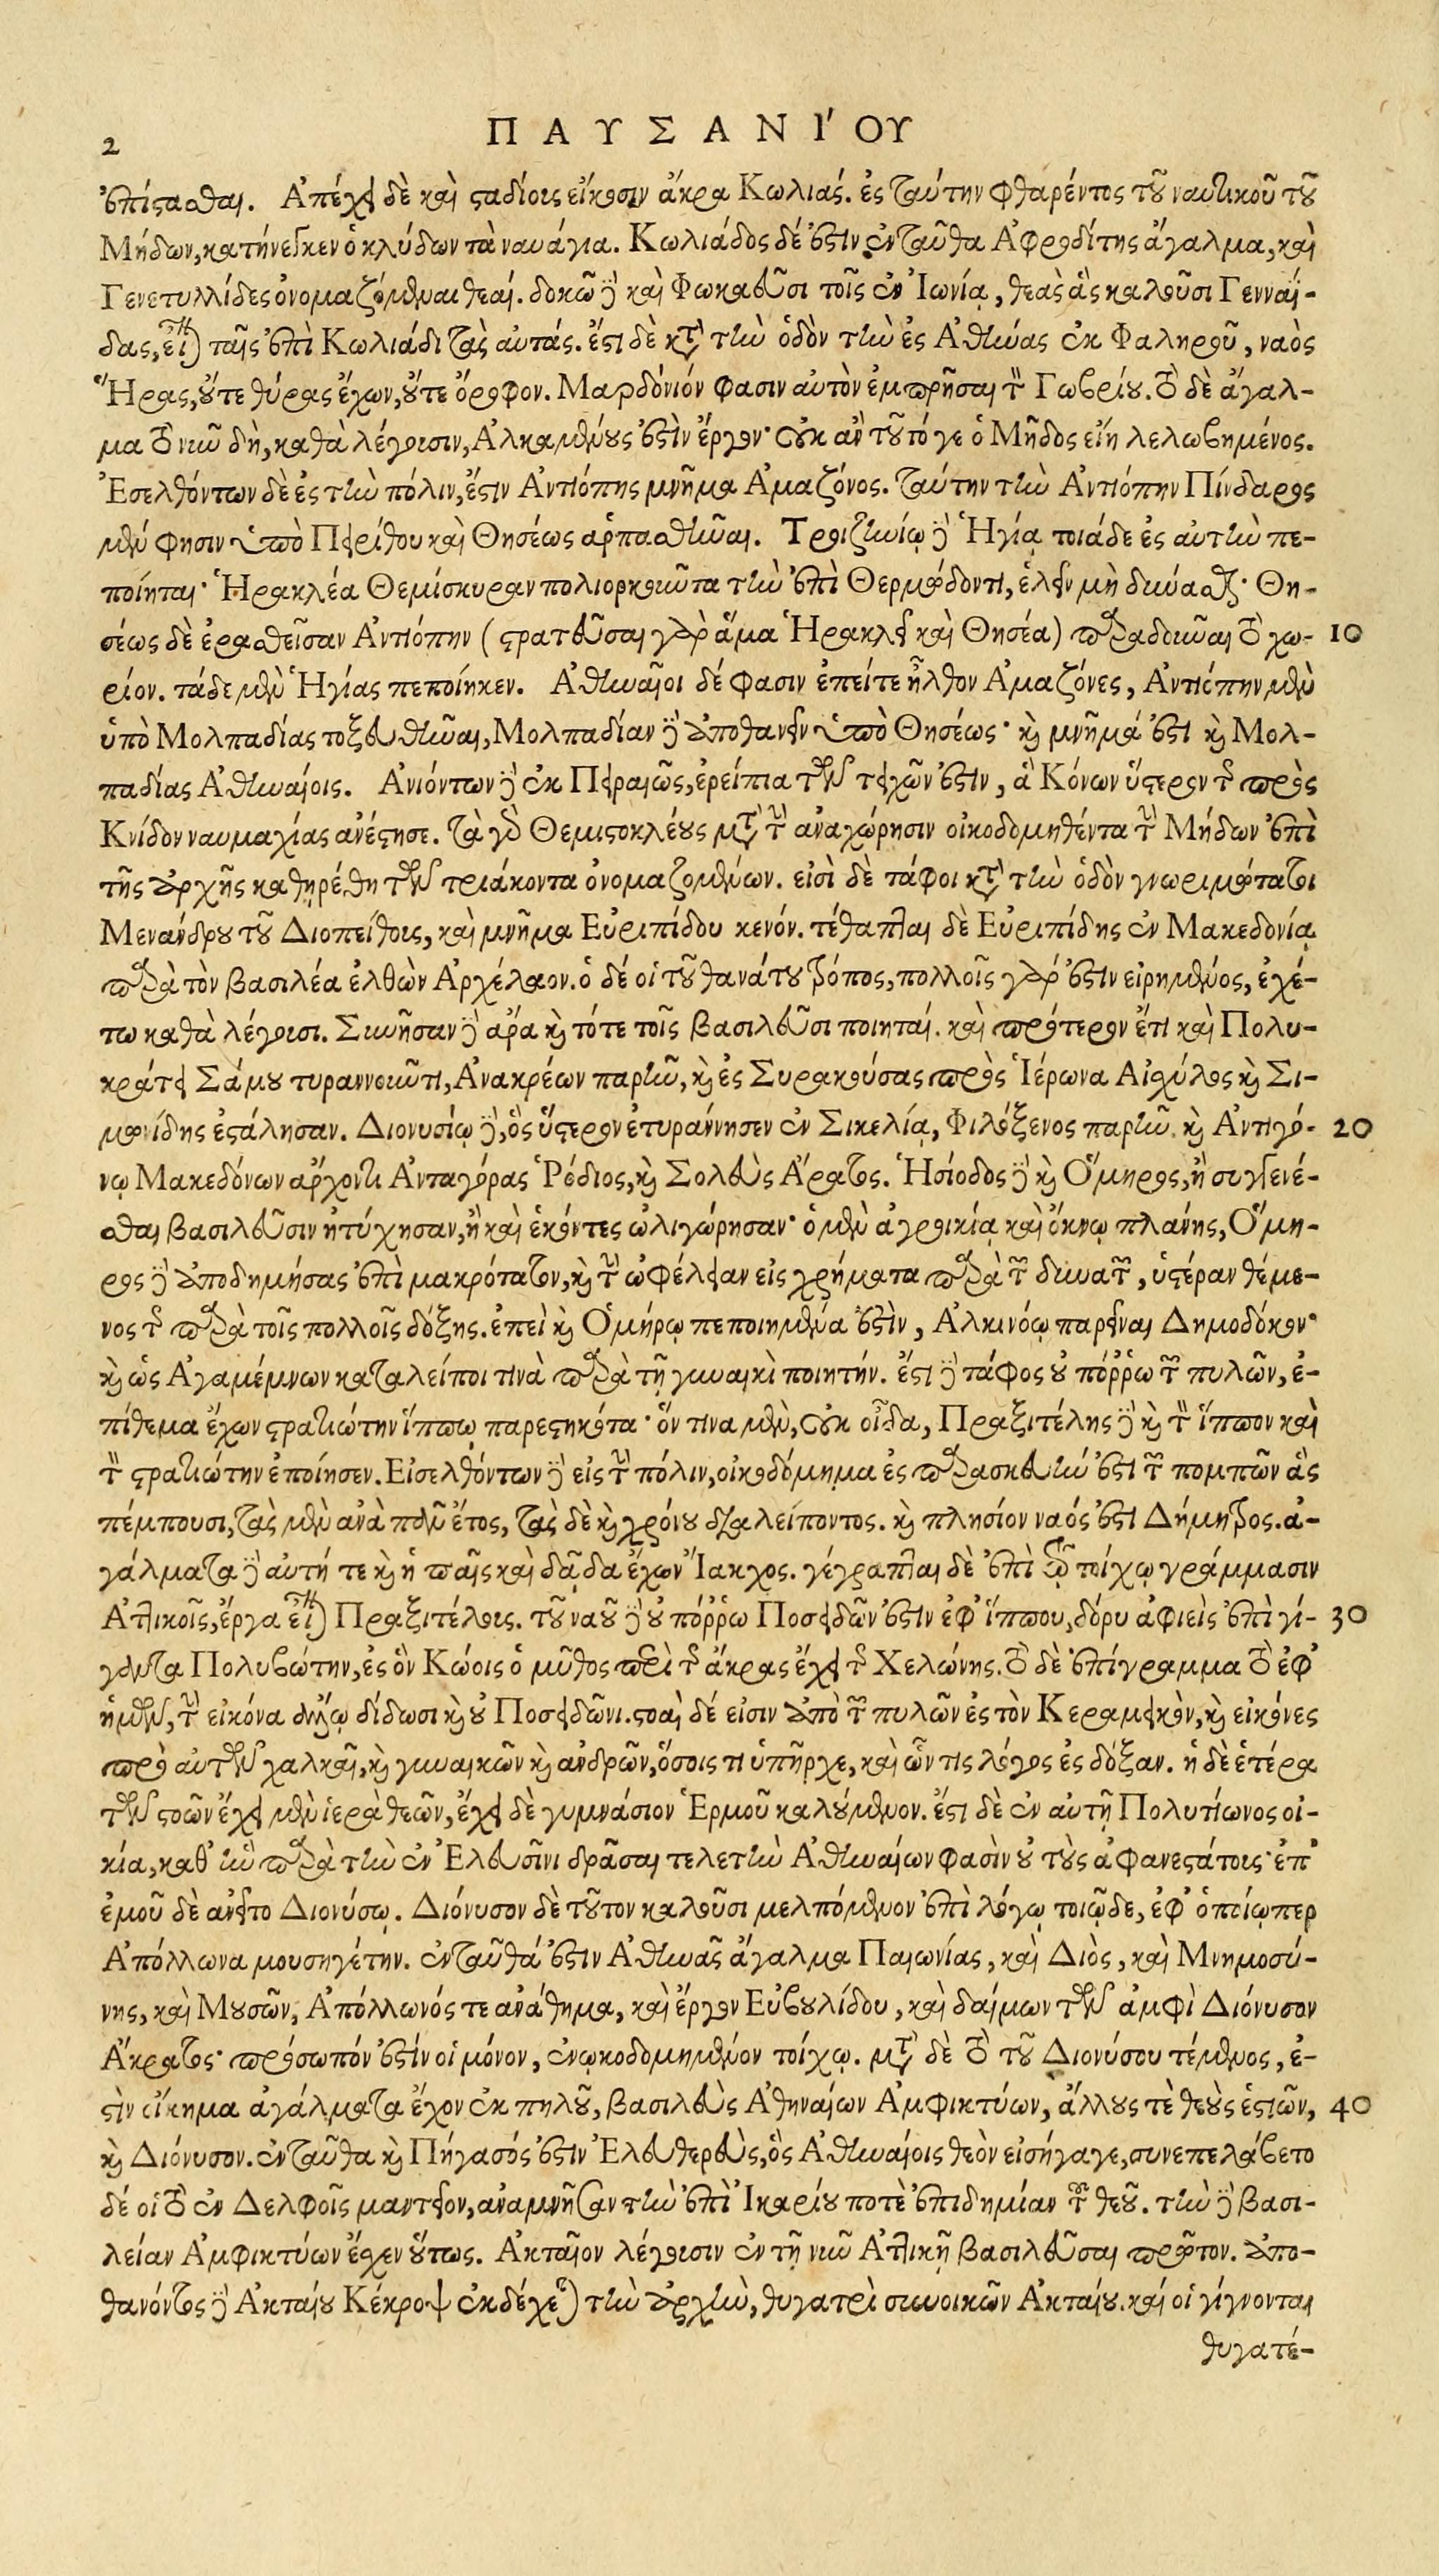 2
ΠΑΥΣΑΝΊΟΥ
ἐπίστασθαι. Ἀπέχει δὲ καὶ σταδίοις εἴκοσιν ἄκρα Κωλιάς. ἐς ταύτην φθαρέντος τοῦ ναυτικοῦ τοῦ
Μήδων, κατήνεγκεν ὁ κλύδων τὰ ναυάγια. Κωλιάδος δέ ἐστιν ἐνταῦθα Ἀφροδίτης ἄγαλμα, καὶ
Γενετυλλίδες ὀνομαζόμεναι θεαί. δοκῶ δὲ καὶ Φωκαεῦσι τοῖς ἐν Ἰωνίᾳ, θεὰς ἃς καλοῦσι Γενναΐ-
δας, εἶναι ταῖς ἐπὶ Κωλιάδι τὰς αὐτάς. ἔστι δὲ κατὰ τὴν ὁδὸν τὴν ἐς Ἀθήνας ἐκ Φαληροῦ, ναὸς
Ἥρας, οὔτε θύρας ἔχων, οὔτε ὄροφον. Μαρδόνιόν φασιν αὐτὸν ἐμπρῆσαι τὸν Γωβρίου. τὸ δὲ ἄγαλ-
μα τὸ νῦν δὴ, καθὰ λέγουσιν, Ἀλκαμένους ἐστὶν ἔργον· οὐκ ἂν τοῦτό γε ὁ Μῆδος εἴη λελωβημένος.
Ἐσελθόντων δὲ ἐς τὴν πόλιν, ἔστιν Ἀντιόπης μνῆμα Ἀμαζόνος. ταύτην τὴν Ἀντιόπην Πίνδαρος
μέν φησιν ὑπὸ Πειρίθου καὶ Θησέως ἁρπασθῆναι. Τροιζηνίῳ δὲ Ἡγίᾳ τοιάδε ἐς αὐτὴν πε-
ποίηται· Ἡρακλέα Θεμίσκυραν πολιορκοῦντα τὴν ἐπὶ Θερμώδοντι, ἑλεῖν μὴ δύνασθαι· Θη-
σέως δὲ ἐρασθεῖσαν Ἀντιόπην (στρατεῦσαι γὰρ ἅμα Ἡρακλεῖ καὶ Θησέα) παραδοῦναι τὸ χω- 10
ρίον. τάδε μὲν Ἡγίας πεποίηκεν. Ἀθηναῖοι δέ φασιν ἐπείτε ἦλθον Ἀμαζόνες, Ἀντιόπην μὲν
ὑπὸ Μολπαδίας τοξευθῆναι, Μολπαδίαν δὲ ἀποθανεῖν ὑπὸ Θησέως· καὶ μνῆμά ἐστι καὶ Μολ-
παδίας Ἀθηναίοις. Ἀνιόντων δὲ ἐκ Πειραιῶς, ἐρείπια τῶν τειχῶν ἐστιν, ἃ Κόνων ὕστερον τῆς πρὸς
Κνίδον ναυμαχίας ἀνέστησε. τὰ γὰρ Θεμιστοκλέους μετὰ τὴν ἀναχώρησιν οἰκοδομηθέντα τὴν Μήδων ἐπὶ
τῆς ἀρχῆς καθῃρέθη τῶν τριάκοντα ὀνομαζομένων. εἰσὶ δὲ τάφοι κατὰ τὴν ὁδὸν γνωριμώτατοι
Μενάνδρου τοῦ Διοπείθους, καὶ μνῆμα Εὐριπίδου κενόν. τέθαπται δὲ Εὐριπίδης ἐν Μακεδονίᾳ
παρὰ τὸν βασιλέα ἐλθὼν Ἀρχέλαον. ὁ δέ οἱ τοῦ θανάτου τρόπος, πολλοῖς γάρ ἐστιν εἰρημένος, ἐχέ-
τω καθὰ λέγουσι. Συνῆσαν δὲ ἄρα καὶ τότε τοῖς βασιλεῦσι ποιηταί. καὶ πρότερον ἔτι καὶ Πολυ-
κράτει Σάμου τυραννοῦντι, Ἀνακρέων παρῆν, καὶ ἐς Συρακούσας πρὸς Ἱέρωνα Αἰσχύλος καὶ Σι-
μωνίδης ἐστάλησαν. Διονυσίῳ δὲ, ὃς ὕστερον ἐτυράννησεν ἐν Σικελίᾳ, Φιλόξενος παρῆν. καὶ Ἀντιγό- 20
νῳ Μακεδόνων ἄρχοντι Ἀνταγόρας Ῥόδιος, καὶ Σολεὺς Ἄρατος. Ἡσίοδος δὲ καὶ Ὅμηρος, ἢ συγγενέ-
σθαι βασιλεῦσιν ἠτύχησαν, ἢ καὶ ἑκόντες ὠλιγώρησαν· ὁ μὲν ἀγροικίᾳ καὶ ὄκνῳ πλάνης, Ὅμη-
ρος δὲ ἀποδημήσας ἐπὶ μακρότατον, καὶ τὴν ὠφέλειαν εἰς χρήματα παρὰ τῶν δυνατῶν, ὑστέραν θέμε-
νος τῆς παρὰ τοῖς πολλοῖς δόξης. ἐπεὶ καὶ Ὁμήρῳ πεποιημένα ἐστὶν, Ἀλκινόῳ παρεῖναι Δημοδόκον·
καὶ ὡς Ἀγαμέμνων καταλείποι τινὰ παρὰ τῇ γυναικὶ ποιητήν. ἔστι δὲ τάφος οὐ πόῤῥω τῶν πυλῶν, ἐ-
πίθεμα ἔχων στρατιώτην ἵππῳ παρεστηκότα· ὅν τινα μὲν, οὐκ οἶδα, Πραξιτέλης δὲ καὶ τὸν ἵππον καὶ
τὸν στρατιώτην ἐποίησεν. Εἰσελθόντων δὲ εἰς τὴν πόλιν, οἰκοδόμημα ἐς παρασκευήν ἐστι τῶν πομπῶν ἃς
πέμπουσι, τὰς μὲν ἀνὰ πᾶν ἔτος, τὰς δὲ καὶ χρόνου διαλείποντος. καὶ πλησίον ναός ἐστι Δήμητρος. ἀ-
γάλματα δὲ αὐτή τε καὶ ἡ παῖς καὶ δᾷδα ἔχων Ἴακχος. γέγραπται δὲ ἐπὶ τῷ τοίχῳ γράμμασιν
Ἀττικοῖς, ἔργα εἶναι Πραξιτέλους. τοῦ ναοῦ δὲ οὐ πόῤῥω Ποσειδῶν ἐστιν ἐφ' ἵππου, δόρυ ἀφιεὶς ἐπὶ γί- 30
γαντα Πολυβώτην, ἐς ὃν Κώοις ὁ μῦθος περὶ τῆς ἄκρας ἔχει τῆς Χελώνης. τὸ δὲ ἐπίγραμμα τὸ ἐφ'
ἡμῶν, τὴν εἰκόνα ἄλλῳ δίδωσι καὶ οὐ Ποσειδῶνι. στοαὶ δέ εἰσιν ἀπὸ τῶν πυλῶν ἐς τὸν Κεραμεικὸν, καὶ εἰκόνες
πρὸ αὐτῶν χαλκαῖ, καὶ γυναικῶν καὶ ἀνδρῶν, ὅσοις τι ὑπῆρχε, καὶ ὧν τις λόγος ἐς δόξαν. ἡ δὲ ἑτέρα
τῶν στοῶν ἔχει μὲν ἱερὰ θεῶν, ἔχει δὲ γυμνάσιον Ἑρμοῦ καλούμενον. ἔστι δὲ ἐν αὐτῇ Πολυτίωνος οἰ-
κία, καθ' ἣν παρὰ τὴν ἐν Ἐλευσῖνι δρᾶσαι τελετὴν Ἀθηναίων φασὶν οὐ τοὺς ἀφανεστάτους· ἐπ'
ἐμοῦ δὲ ἀνεῖτο Διονύσῳ. Διόνυσον δὲ τοῦτον καλοῦσι μελπόμενον ἐπὶ λόγῳ τοιῷδε, ἐφ' ὁποίῳπερ
Ἀπόλλωνα μουσηγέτην. ἐνταῦθά ἐστιν Ἀθηνᾶς ἄγαλμα Παιωνίας, καὶ Διὸς, καὶ Μνημοσύ-
νης, καὶ Μουσῶν, Ἀπόλλωνός τε ἀνάθημα, καὶ ἔργον Εὐβουλίδου, καὶ δαίμων τῶν ἀμφὶ Διόνυσον
Ἄκρατος· πρόσωπόν ἐστίν οἱ μόνον, ἐνῳκοδομημένον τοίχῳ. μετὰ δὲ τὸ τοῦ Διονύσου τέμενος, ἐ-
στὶν οἴκημα ἀγάλματα ἔχον ἐκ πηλοῦ, βασιλεὺς Ἀθηναίων Ἀμφικτύων, ἄλλους τὲ θεοὺς ἑστιῶν, 40
καὶ Διόνυσον. ἐνταῦθα καὶ Πήγασός ἐστιν Ἐλευθερεὺς, ὃς Ἀθηναίοις θεὸν εἰσήγαγε, συνεπελάβετο
δέ οἱ τὸ ἐν Δελφοῖς μαντεῖον, ἀναμνῆσαν τὴν ἐπὶ Ἰκαρίου ποτὲ ἐπιδημίαν τοῦ θεοῦ. τὴν δὲ βασι-
λείαν Ἀμφικτύων ἔσχεν οὕτως. Ἀκταῖον λέγουσιν ἐν τῇ νῦν Ἀττικῇ βασιλεῦσαι πρῶτον. ἀπο-
θανόντος δὲ Ἀκταίου Κέκροψ ἐκδέχεται τὴν ἀρχὴν, θυγατρὶ συνοικῶν Ἀκταίου. καί οἱ γίγνονται
θυγατέ-